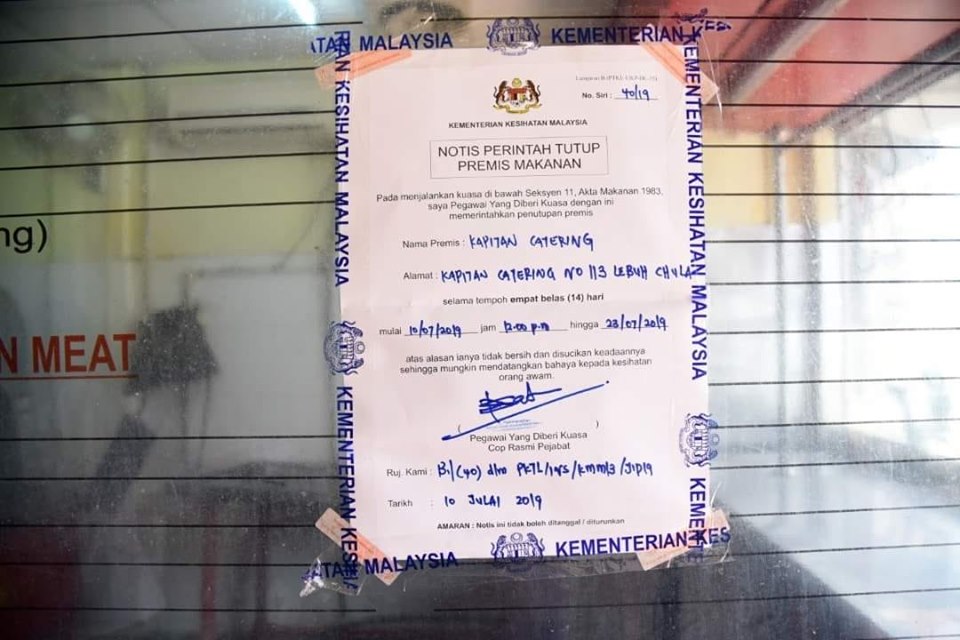 KEMENTERIAN KESIHATAN MALAYSIA
No. Siri : 40/19
KEMENTERIAN KESIHATAN MALAYSIA
NOTIS PERINTAH TUTUP
PREMIS MAKANAN
Pada menjalankan kuasa di bawah Seksyen 11, Akta Makanan 1983,
saya Pegawai Yang Diberi Kuasa dengan ini
memerintahkan penutupan premis
Nama Premis : KAPITAN CATERING
Alamat : KAPITAN CATERING NO 113 LEBUH CHULIA
selama tempoh empat belas (14) hari
mulai 10/07/2019 jam 12.00 p.m hingga 23/07/2019
atas alasan ianya tidak bersih dan disucikan keadaannya
sehingga mungkin mendatangkan bahaya kepada kesihatan
orang awam.
Pegawai Yang Diberi Kuasa
Cop Rasmi Pejabat
Ruj. Kami :
Tarikh : 10 JULAI 2019
AMARAN : Notis ini tidak boleh ditanggal / diturunkan
ATAN MALAYSIA KEMENTERIAN K
KEMENTERIAN KESIHATAN MALAYSIA
KEMENTERIAN KES
ATAN MALAYSIA KEMENTERIAN KES
KEMENT
ng)
N MEAT